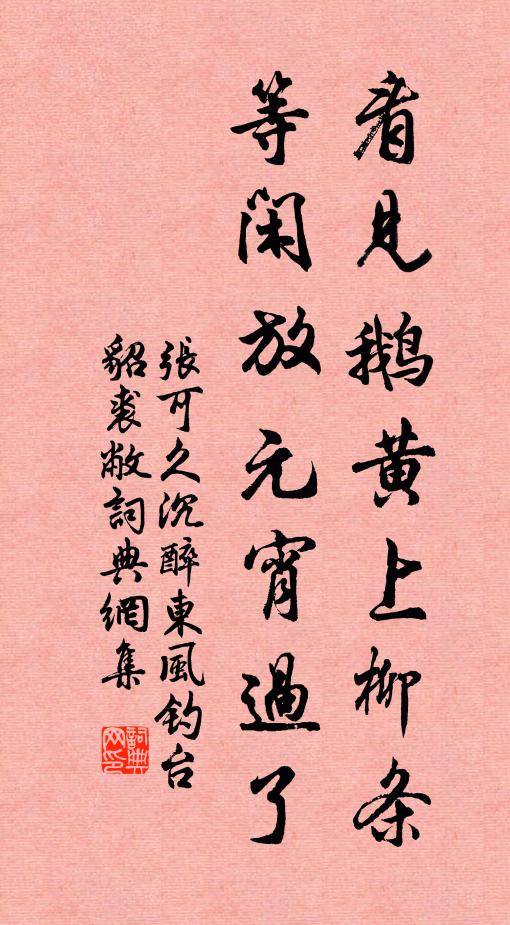 看見鵝黃上柳条
等閑放元宵過了
張可久沉醉東風钓台
貂裘敝詞典網集
詞典网印